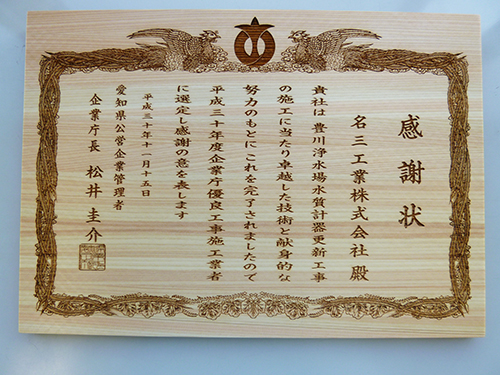 感謝状
名三工業株式会社殿
貴社は豊川浄水場水質計器更新工事
の施工に当たり卓越した技術と献身的な
努力のもとにこれを完了されましたので
平成三十年度企業庁優良工事施工業者
に選定し感謝の意を表します
平成三十年十一月十五日
愛知県公営企業管理者
企業庁長 松井圭介